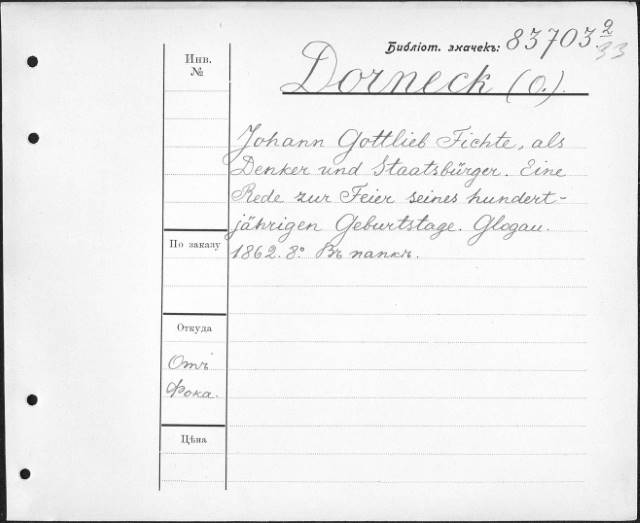 Библіот. значекъ: 83703 2/33
Инв. №
Dorneck (O.).
Johann Gottlieb Fichte, als
Denker und Staatsbürger. Eine
Rede zur Feier seines hundert-
jährigen Geburtstage. Glogau.
1862. 8° Въ папкѣ.
По заказу
Откуда
Отъ
Фока.
Цѣна